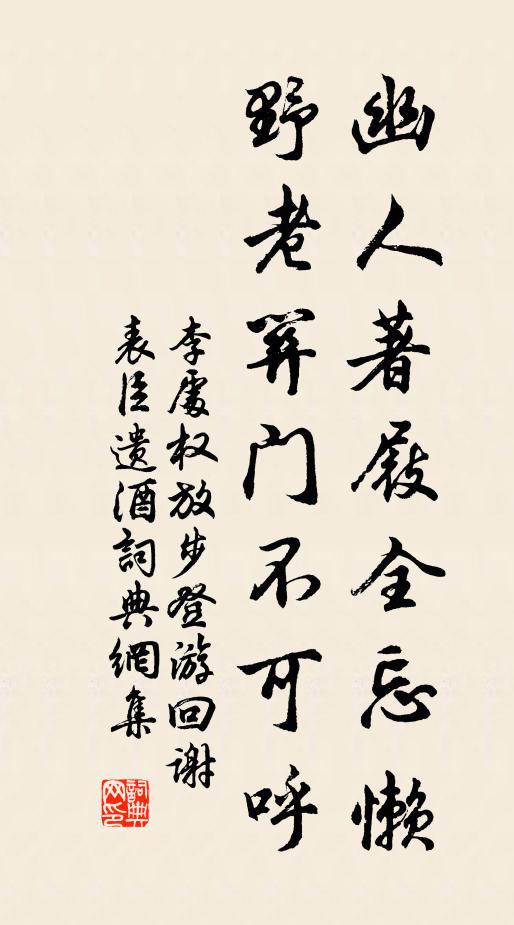 幽人著屐全忘懒
野老关门不可呼
李處权放步登游回谢
表臣遗酒詞典網集
詞典网印